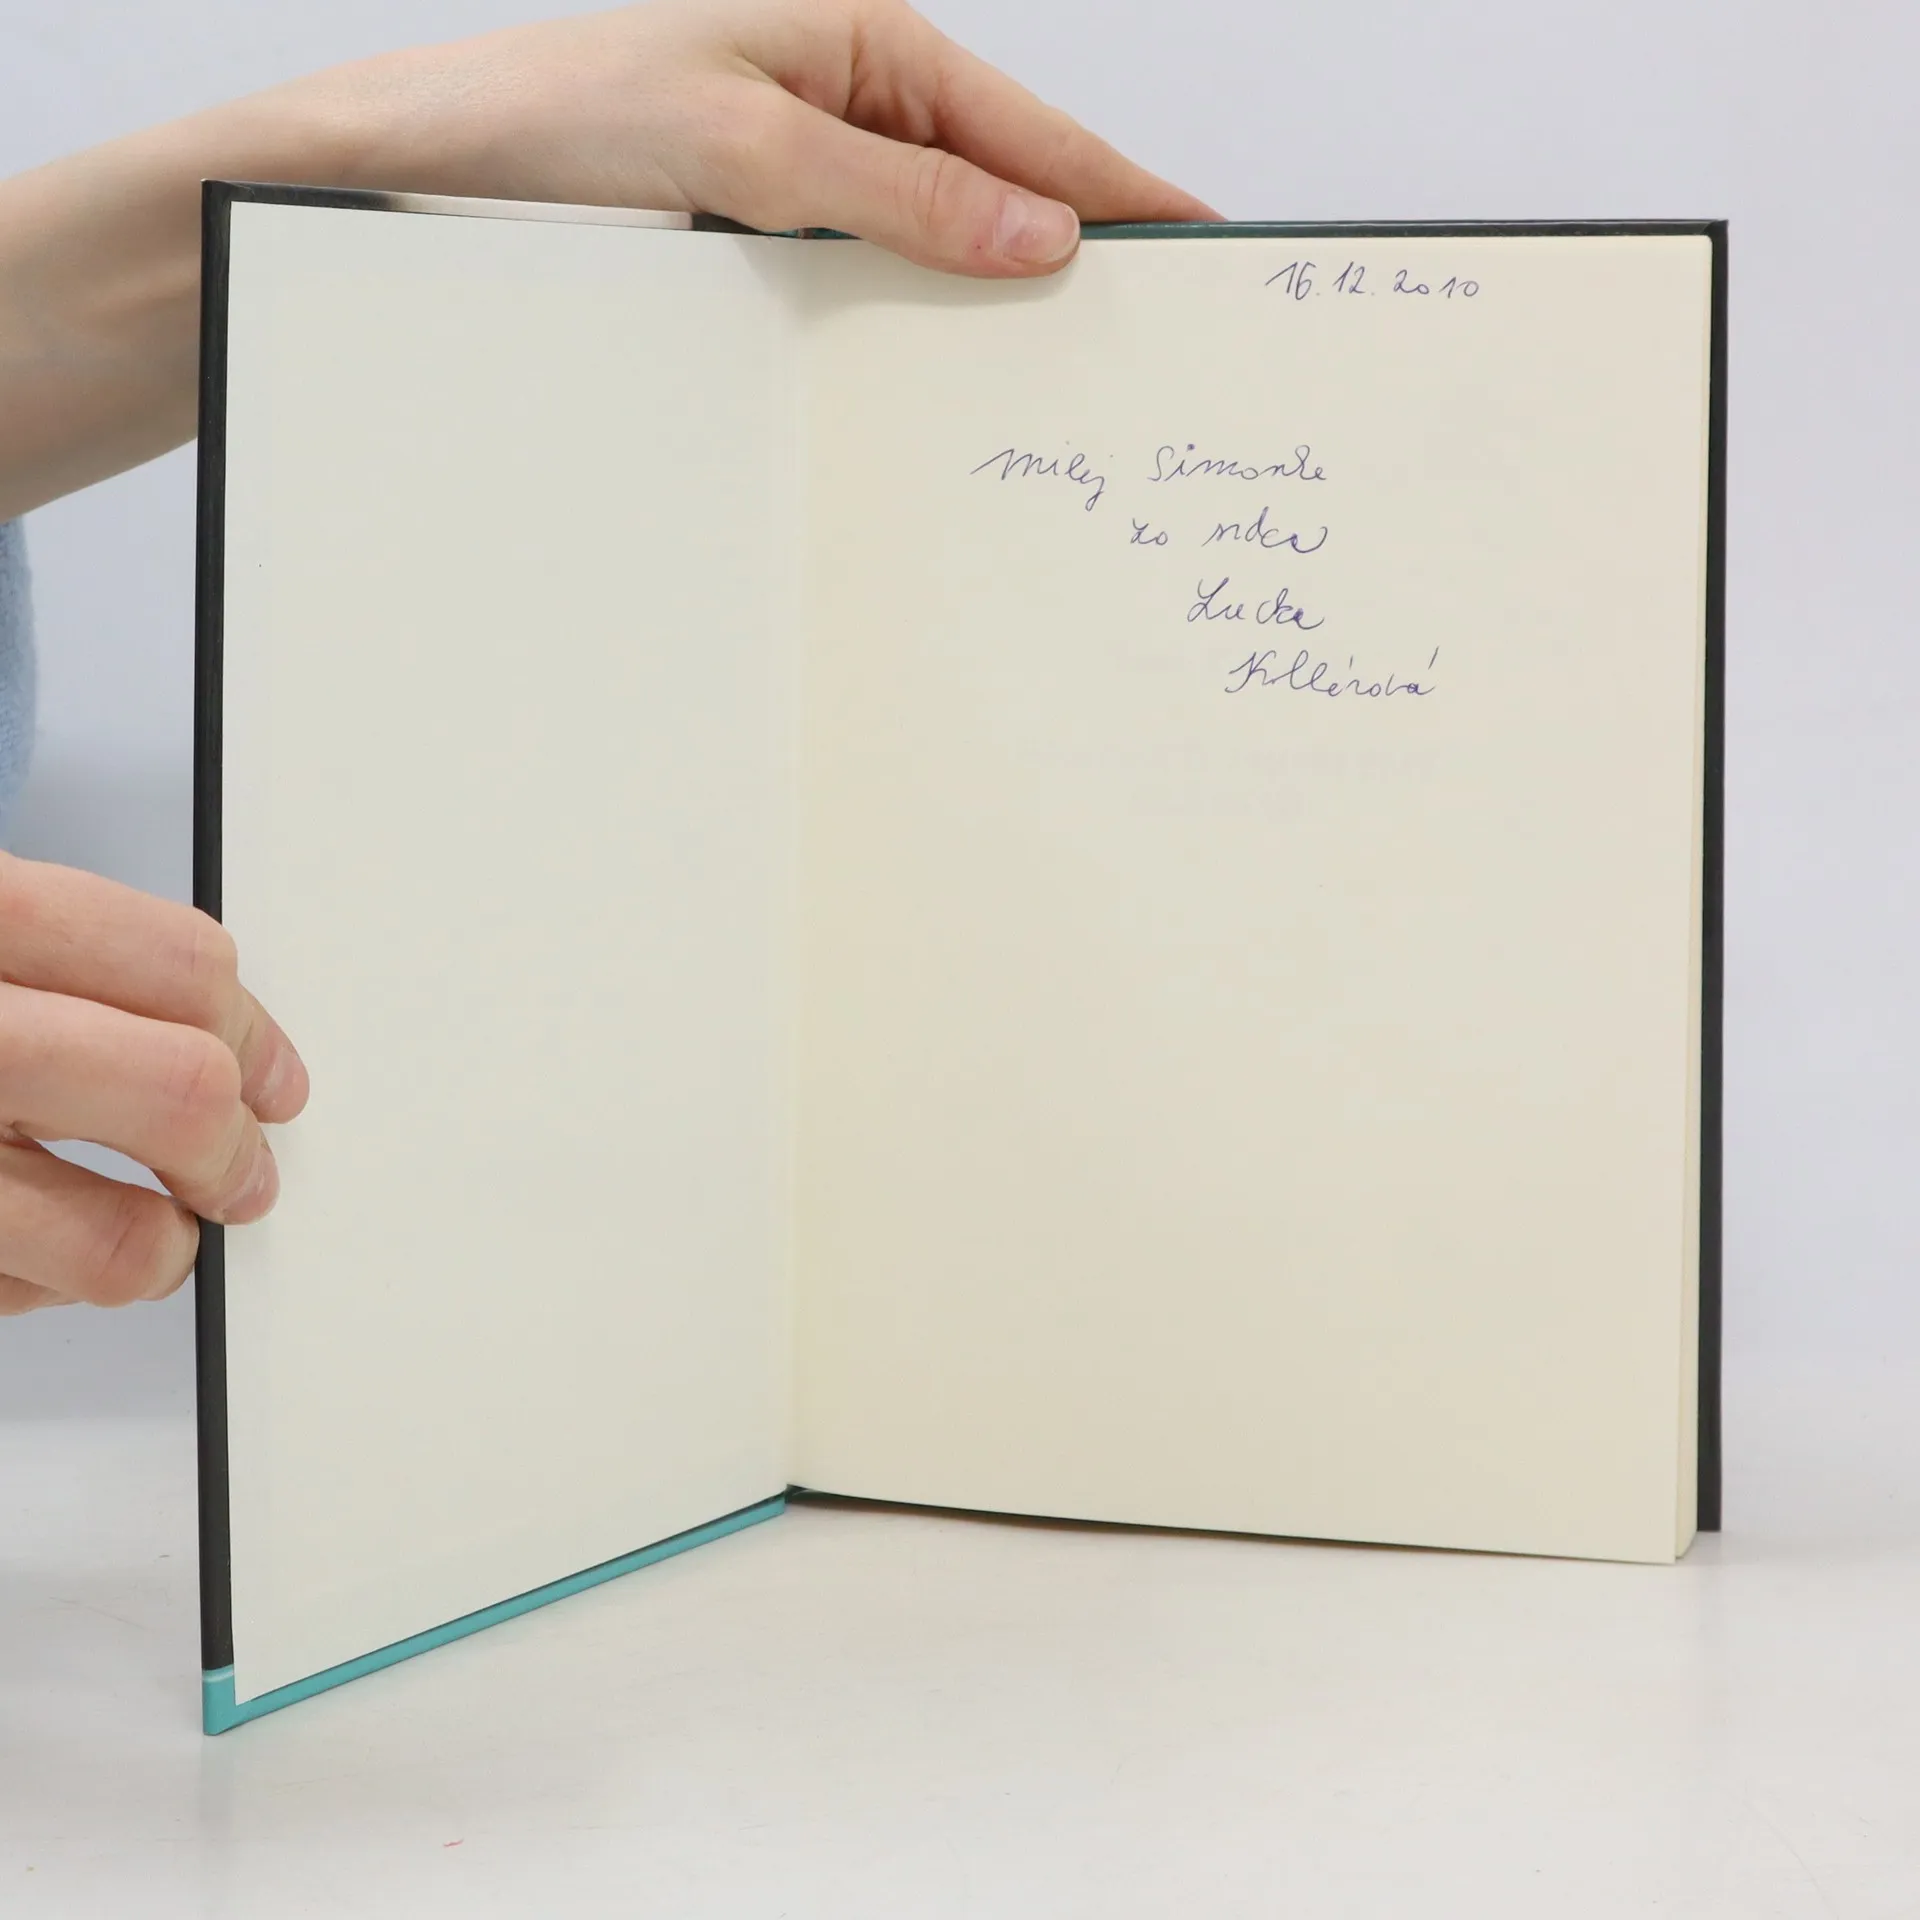 16.12.2010
Milej Simonke
zo srdca
Lucka
Kollérová